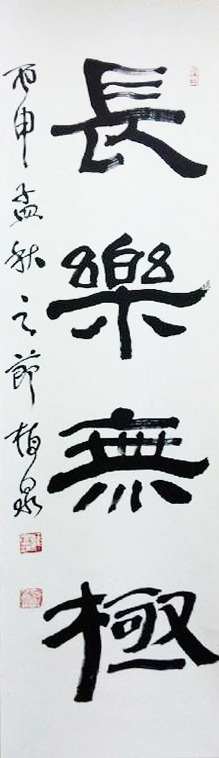 長樂無極
丙申孟秋之節梅泉